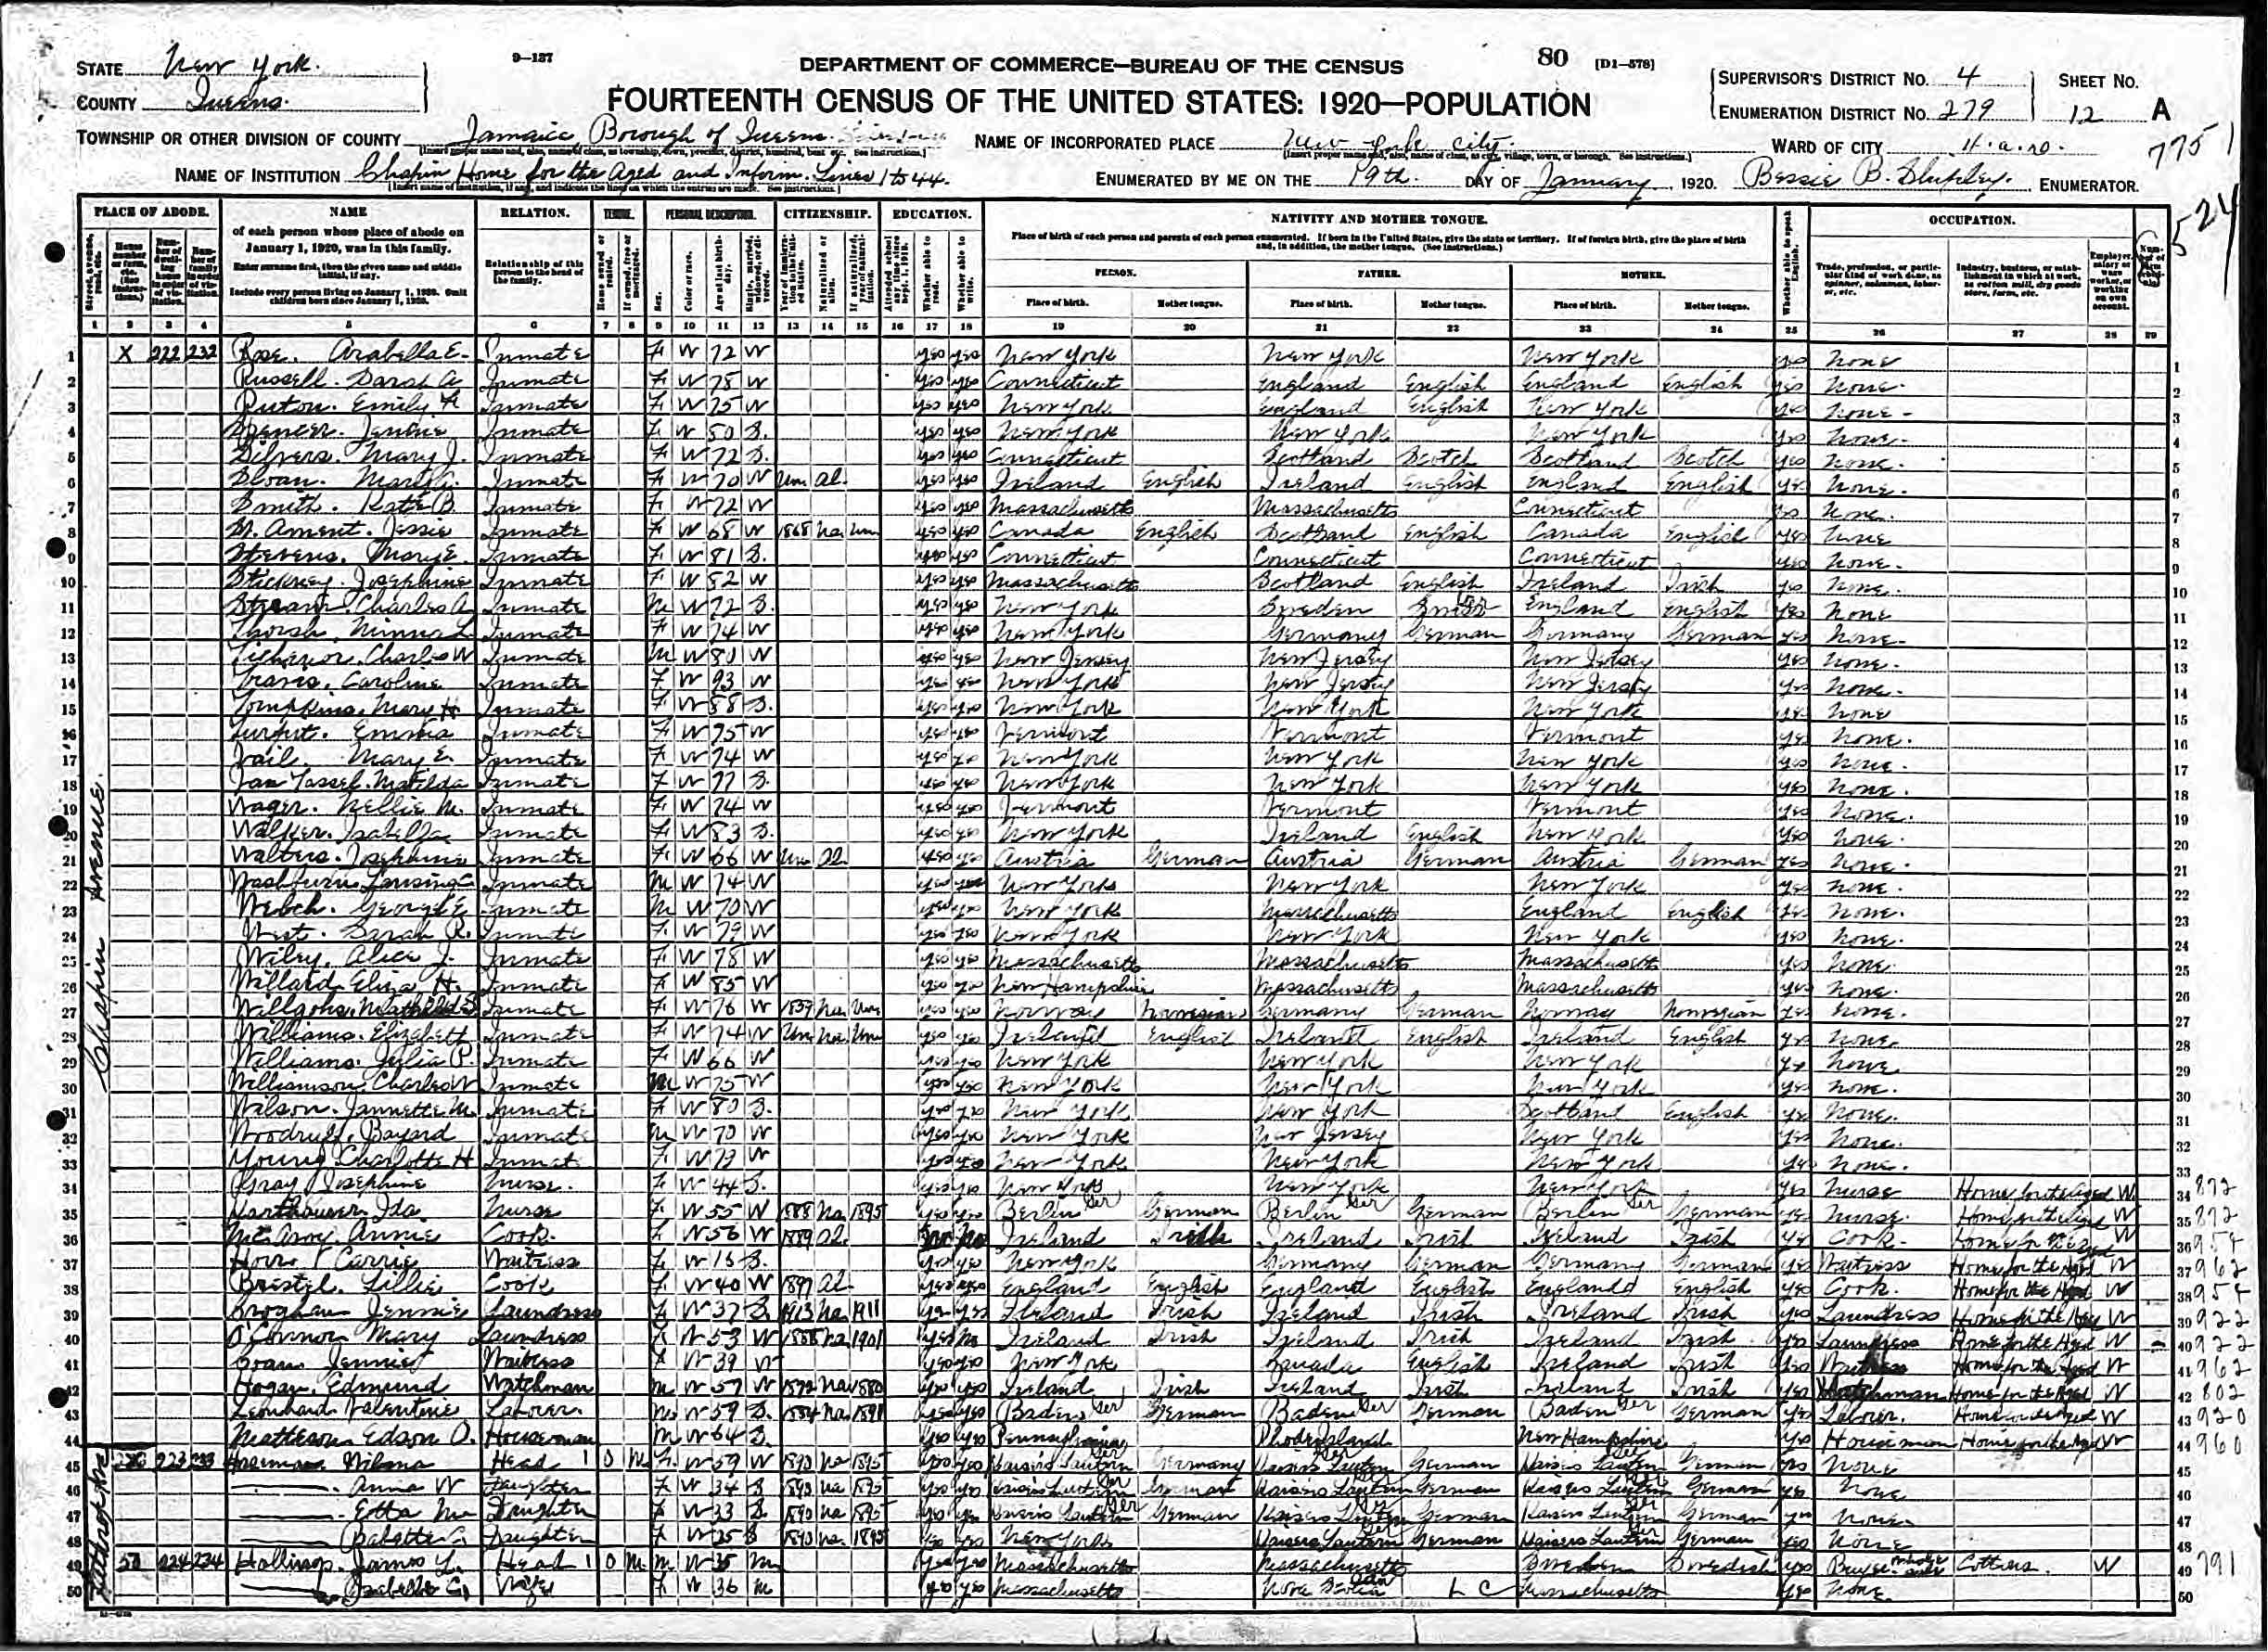 9-137
80 [D1-578]
STATE New York.
COUNTY Queens.
DEPARTMENT OF COMMERCE—BUREAU OF THE CENSUS
FOURTEENTH CENSUS OF THE UNITED STATES: 1920—POPULATION
SUPERVISOR'S DISTRICT No. 4
ENUMERATION DISTRICT No. 279
SHEET No. 12 A
7751
524
TOWNSHIP OR OTHER DIVISION OF COUNTY Jamaica Borough of Queens.
NAME OF INCORPORATED PLACE New York City.
WARD OF CITY 4. a. D.
NAME OF INSTITUTION Chapin Home for the Aged and Infirm. Lines 1 to 44.
ENUMERATED BY ME ON THE 19th. DAY OF January, 1920. Bessie B. ENUMERATOR.
PLACE OF ABODE. NAME RELATION. TENURE. PERSONAL DESCRIPTION. CITIZENSHIP. EDUCATION. NATIVITY AND MOTHER TONGUE. OCCUPATION.
of each person whose place of abode on January 1, 1920, was in this family.
Enter surname first, then the given name and middle initial, if any.
Include every person living on January 1, 1920. Omit children born since January 1, 1920.
Relationship of this person to the head of the family.
Place of birth of each person and parents of each person enumerated. If born in the United States, give the state or territory. If of foreign birth, give the place of birth and, in addition, the mother tongue. (See instructions.)
PERSON. FATHER. MOTHER.
Place of birth. Mother tongue. Place of birth. Mother tongue. Place of birth. Mother tongue.
1 2 3 4 5 6 7 8 9 10 11 12 13 14 15 16 17 18 19 20 21 22 23 24 25 26 27 28 29
Chapin Avenue.
1 X 222 232 Rose. Arabella E. Inmate F W 72 W yes yes New York New York New York yes None 1
2 Russell. Sarah A Inmate F W 78 W yes yes Connecticut England English England English yes None. 2
3 Ruton. Emily Inmate F W 75 W yes yes New York England English New York yes None 3
4 Spencer. Jennie Inmate F W 50 S. yes yes New York New York New York yes None. 4
5 Silvers. Mary J. Inmate F W 72 S. yes yes Connecticut Scotland Scotch Scotland Scotch yes None. 5
6 Sloan. Inmate F W 70 W Un. Al. yes yes Ireland English Ireland English England English yes None. 6
7 Smith. Kate B Inmate F W 72 W yes yes Massachusetts Massachusetts Connecticut yes None. 7
8 St. Ament. Jessie Inmate F W 68 W 1868 Na. Un yes yes Canada English Scotland English Canada English yes None 8
9 Stevens. Mary E. Inmate F W 81 S. yes yes Connecticut Connecticut Connecticut yes None. 9
10 Stickney. Josephine Inmate F W 82 W yes yes Massachusetts Scotland English Ireland Irish yes None. 10
11 Charles A Inmate M W 72 S. yes yes New York Sweden England English yes None 11
12 Minna L Inmate F W 74 W yes yes New York Germany German Germany German yes None. 12
13 Tichenor. Charles W Inmate M W 80 W yes yes New Jersey New Jersey New Jersey yes None. 13
14 Travis. Caroline Inmate F W 93 W yes yes New York New Jersey New Jersey yes None. 14
15 Tompkins. Mary H Inmate F W 88 S. yes yes New York New York New York yes None 15
16 Emma Inmate F W 75 W yes yes Vermont Vermont Vermont yes None. 16
17 Vail. Mary E. Inmate F W 74 W yes yes New York New York New York yes None. 17
18 Van Tassel. Matilda Inmate F W 77 S. yes yes New York New York New York yes None. 18
19 Wager. Nellie M. Inmate F W 74 W yes yes Vermont Vermont Vermont yes None. 19
20 Walker. Isabella Inmate F W 83 S. yes yes New York Ireland English New York yes None. 20
21 Walters. Josephine Inmate F W 66 W Un Al. yes yes Austria German Austria German Austria German yes None. 21
22 Washburn Lansing Inmate M W 74 W yes yes New York New York New York yes None. 22
23 Welch. George E. Inmate M W 70 W yes yes New York Massachusetts England English yes None. 23
24 West. Sarah R. Inmate F W 79 W yes yes New York New York New York yes None. 24
25 Wiley. Alice J. Inmate F W 78 W yes yes Massachusetts Massachusetts Massachusetts yes None. 25
26 Willard Eliza H. Inmate F W 85 W yes yes New Hampshire Massachusetts Massachusetts yes None. 26
27 Inmate F W 76 W 1859 Na. Un yes yes Norway Norwegian Germany German Norway Norwegian yes None. 27
28 Williams. Elizabeth Inmate F W 74 W Un Na. Un yes yes Ireland English Ireland English Ireland English yes None. 28
29 Williams. Julia P. Inmate F W 66 W yes yes New York New York New York yes None 29
30 Williamson. Charles W Inmate M W 75 W yes yes New York New York New York yes None. 30
31 Wilson. Jannette M. Inmate F W 80 S. yes yes New York New York Scotland English yes None. 31
32 Woodruff. Bayard Inmate M W 70 W yes yes New York New Jersey New York yes None. 32
33 Young Charlotte H Inmate F W 73 W yes yes New York New York New York yes None. 33
34 Gray Josephine Nurse. F W 44 S. yes yes New York New York New York yes Nurse Home for the Aged W 34 872
35 Ida Nurse F W 55 W 1888 Na 1895 yes yes Berlin Ger German Berlin Ger German Berlin Ger German yes Nurse. Home for the Aged W 35 872
36 McEvoy. Annie Cook. F W 56 W 1889 Al. No No Ireland Irish Ireland Irish Ireland Irish yes Cook. Home for the Aged W 36 954
37 Carrie Waitress F W S. yes yes New York Germany German Germany German yes Waitress Home for the Aged W 37 962
38 Lillie Cook F W 40 W 1897 Al yes yes England English England English England English yes Cook. Home for the Aged W 38 954
39 Broghan Jennie Laundress F W 37 S. 1913 Na. 1911 yes yes Ireland Irish Ireland Irish Ireland Irish yes Laundress Home for the Aged W 39 922
40 O'Connor Mary Laundress F W 53 W 1888 Na 1901 yes No Ireland Irish Ireland Irish Ireland Irish yes Laundress Home for the Aged W 40 922
41 Jennie Waitress F W 39 W yes yes New York Canada English Ireland Irish yes Waitress Home for the Aged W 41 962
42 Hogan. Edmund Watchman M W 57 W 1872 Na 1880 yes yes Ireland Irish Ireland Irish Ireland Irish yes Watchman Home for the Aged W 42 802
43 Leonhard Valentine Laborer. M W 59 S. 1884 Na. 1891 yes yes Baden Ger German Baden Ger German Baden Ger German yes Laborer. Home for the Aged W 43 920
44 Matteson Edson O. Houseman M W 64 S. yes yes Pennsylvania Rhode Island New Hampshire yes Houseman Home for the Aged W 44 960
45 223 233 Wilma Head 1 O M. F. W 59 W 1890 Na 1895 yes yes Kaisers Lautern Ger Germany Kaisers Lautern Ger German Kaisers Lautern Ger German yes None 45
46 Anna W Daughter F W 34 S 1890 Na 1895 yes yes Kaisers Lautern Ger German Kaisers Lautern German Kaisers Lautern Ger German yes None 46
47 Etta M Daughter F W 33 S 1890 Na 1895 yes yes Kaisers Lautern Ger German Kaisers Lautern Ger German Kaisers Lautern Ger German yes None 47
48 Babette Daughter F W 25 S 1890 Na. 1895 yes yes New York Kaisers Lautern Ger German Kaisers Lautern Ger German yes None 48
49 50 224 234 James L. Head 1 O M M W 35 M yes yes Massachusetts Massachusetts Sweden Swedish yes Buyer Cottons. W 49 791
50 Isabelle Wife F W 36 M yes yes Massachusetts Nova Scotia Can Massachusetts yes None 50